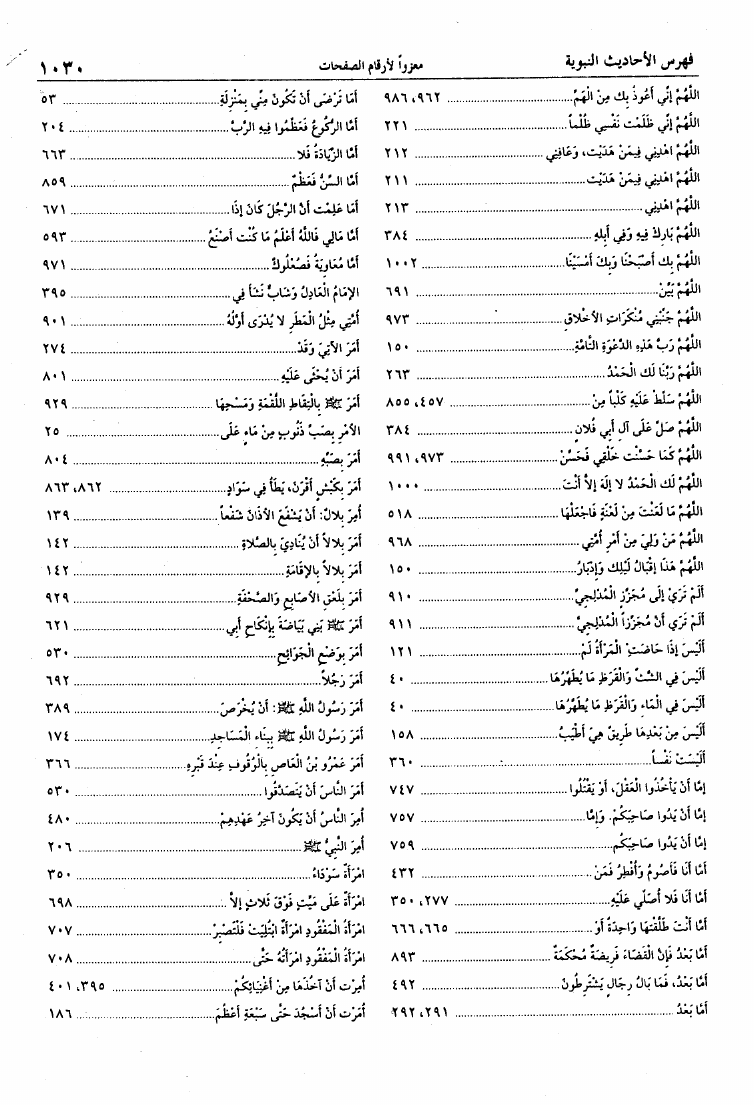 فهرس الأحاديث النبوية
معزواً لأرقام الصفحات
١٠٣٠
اللَّهُمَّ إِنِّي أَعُوذُ بِكَ مِنَ الْهَمِّ ..... ٩٦٢، ٩٨٦
اللَّهُمَّ إِنِّي ظَلَمْتُ نَفْسِي ظُلْماً ..... ٢٢١
اللَّهُمَّ اهْدِنِي فِيمَنْ هَدَيْتَ، وَعَافِنِي ..... ٢١٢
اللَّهُمَّ اهْدِنِي فِيمَنْ هَدَيْتَ ..... ٢١١
اللَّهُمَّ اهْدِنِي ..... ٢١٣
اللَّهُمَّ بَارِكْ فِيهِ وَفِي أَبِلِهِ ..... ٣٨٤
اللَّهُمَّ بِكَ أَصْبَحْنَا وَبِكَ أَمْسَيْنَا ..... ١٠٠٢
اللَّهُمَّ بَيِّنْ ..... ٦٩١
اللَّهُمَّ جَنِّبْنِي مُنْكَرَاتِ الأَخْلاَقِ ..... ٩٧٣
اللَّهُمَّ رَبَّ هَذِهِ الدَّعْوَةِ التَّامَّةِ ..... ١٥٠
اللَّهُمَّ رَبَّنَا لَكَ الْحَمْدُ ..... ٢٦٣
اللَّهُمَّ سَلِّطْ عَلَيْهِ كَلْباً مِنْ ..... ٤٥٧، ٨٥٥
اللَّهُمَّ صَلِّ عَلَى آلِ أَبِي فُلاَنٍ ..... ٣٨٤
اللَّهُمَّ كَمَا حَسَّنْتَ خَلْقِي فَحَسِّنْ ..... ٩٧٣، ٩٩١
اللَّهُمَّ لَكَ الْحَمْدُ لاَ إِلَهَ إِلاَّ أَنْتَ ..... ١٠٠٠
اللَّهُمَّ مَا لَعَنْتُ مِنْ لَعْنَةٍ فَاجْعَلْهَا ..... ٥١٨
اللَّهُمَّ مَنْ وَلِيَ مِنْ أَمْرِ أُمَّتِي ..... ٩٦٨
اللَّهُمَّ هَذَا إِقْبَالُ لَيْلِكَ وَإِدْبَارُ ..... ١٥٠
أَلَمْ تَرَيْ إِلَى مُجَزِّزٍ الْمُدْلِجِيِّ ..... ٩١٠
أَلَمْ تَرَيْ أَنَّ مُجَزِّزاً الْمُدْلِجِيَّ ..... ٩١١
أَلَيْسَ إِذَا حَاضَتِ الْمَرْأَةُ لَمْ ..... ١٢١
أَلَيْسَ فِي الشَّثِّ وَالْقَرَظِ مَا يُطَهِّرُهَا ..... ٤٠
أَلَيْسَ فِي الْمَاءِ وَالْقَرَظِ مَا يُطَهِّرُهَا ..... ٤٠
أَلَيْسَ مِنْ بَعْدِهَا طَرِيقٌ هِيَ أَطْيَبُ ..... ١٥٨
أَلَيْسَتْ نَفْساً ..... ٣٦٠
إِمَّا أَنْ يَأْخُذُوا الْعَقْلَ، أَوْ يَقْتُلُوا ..... ٧٤٧
إِمَّا أَنْ يَدُوا صَاحِبَكُمْ. وَإِمَّا ..... ٧٥٧
إِمَّا أَنْ يَدُوا صَاحِبَكُمْ ..... ٧٥٩
أَمَّا أَنَا فَأَصُومُ وَأُفْطِرُ فَمَنْ ..... ٤٣٢
أَمَّا أَنَا فَلاَ أُصَلِّي عَلَيْهِ ..... ٢٧٧، ٣٥٠
أَمَّا أَنْتَ طَلَّقْتَهَا وَاحِدَةً أَوْ ..... ٦٦٥، ٦٦٦
أَمَّا بَعْدُ فَإِنَّ الْقَضَاءَ فَرِيضَةٌ مُحْكَمَةٌ ..... ٨٩٣
أَمَّا بَعْدُ، فَمَا بَالُ رِجَالٍ يَشْتَرِطُونَ ..... ٤٩٢
أَمَّا بَعْدُ ..... ٢٩١، ٢٩٢
أَمَا تَرْضَى أَنْ تَكُونَ مِنِّي بِمَنْزِلَةِ ..... ٥٣
أَمَّا الرُّكُوعُ فَعَظِّمُوا فِيهِ الرَّبَّ ..... ٢٠٤
أَمَّا الزِّيَادَةُ فَلاَ ..... ٦٦٣
أَمَّا السِّنُّ فَعَظْمٌ ..... ٨٥٩
أَمَا عَلِمْتَ أَنَّ الرَّجُلَ كَانَ إِذَا ..... ٦٧١
أَمَّا مَالِي فَاللَّهُ أَعْلَمُ مَا كُنْتَ أَصْنَعُ ..... ٥٩٣
أَمَّا مُعَاوِيَةُ فَصُعْلُوكٌ ..... ٩٧١
الإِمَامُ الْعَادِلُ وَشَابٌّ نَشَأَ فِي ..... ٣٩٥
أُمَّتِي مِثْلُ الْمَطَرِ لاَ يُدْرَى أَوَّلُهُ ..... ٩٠١
أَمَرَ الآتِيَ وَقَدْ ..... ٢٧٤
أَمَرَ أَنْ يُحْثَى عَلَيْهِ ..... ٨٠١
أَمَرَ ﷺ بِالْتِقَاطِ اللُّقْمَةِ وَمَسْحِهَا ..... ٩٢٩
الأَمْرِ بِصَبِّ ذَنُوبٍ مِنْ مَاءٍ عَلَى ..... ٢٥
أَمَرَ بِصَبِّهِ ..... ٨٠٤
أَمَرَ بِكَبْشٍ أَقْرَنَ، يَطَأُ فِي سَوَادٍ ..... ٨٦٢، ٨٦٣
أُمِرَ بِلاَلٌ: أَنْ يَشْفَعَ الأَذَانَ شَفْعاً ..... ١٣٩
أَمَرَ بِلاَلاً أَنْ يُنَادِيَ بِالصَّلاَةِ ..... ١٤٢
أَمَرَ بِلاَلاً بِالإِقَامَةِ ..... ١٤٢
أَمَرَ بِلَعْقِ الأَصَابِعِ وَالصَّحْفَةِ ..... ٩٢٩
أَمَرَ ﷺ بَنِي بَيَاضَةَ بِإِنْكَاحِ أَبِي ..... ٦٢١
أَمَرَ بِوَضْعِ الْجَوَائِحِ ..... ٥٣٠
أَمَرَ رَجُلاً ..... ٦٩٢
أَمَرَ رَسُولُ اللَّهِ ﷺ: أَنْ يُخْرَصَ ..... ٣٨٩
أَمَرَ رَسُولُ اللَّهِ ﷺ بِبِنَاءِ الْمَسَاجِدِ ..... ١٧٤
أَمَرَ عَمْرُو بْنُ الْعَاصِ بِالْوُقُوفِ عِنْدَ قَبْرِهِ ..... ٣٦٦
أَمَرَ النَّاسَ أَنْ يَتَصَدَّقُوا ..... ٥٣٠
أُمِرَ النَّاسُ أَنْ يَكُونَ آخِرُ عَهْدِهِمْ ..... ٤٨٠
أُمِرَ النَّبِيُّ ﷺ ..... ٢٠٦
امْرَأَةً سَوْدَاءَ ..... ٣٥٠
امْرَأَةٌ عَلَى مَيِّتٍ فَوْقَ ثَلاَثٍ إِلاَّ ..... ٦٩٨
امْرَأَةُ الْمَفْقُودِ امْرَأَةٌ ابْتُلِيَتْ فَلْتَصْبِرْ ..... ٧٠٧
امْرَأَةُ الْمَفْقُودِ امْرَأَتُهُ حَتَّى ..... ٧٠٨
أُمِرْتُ أَنْ آخُذَهَا مِنْ أَغْنِيَائِكُمْ ..... ٣٩٥، ٤٠١
أُمِرْتُ أَنْ أَسْجُدَ حَتَّى سَبْعَةِ أَعْظُمَ ..... ١٨٦